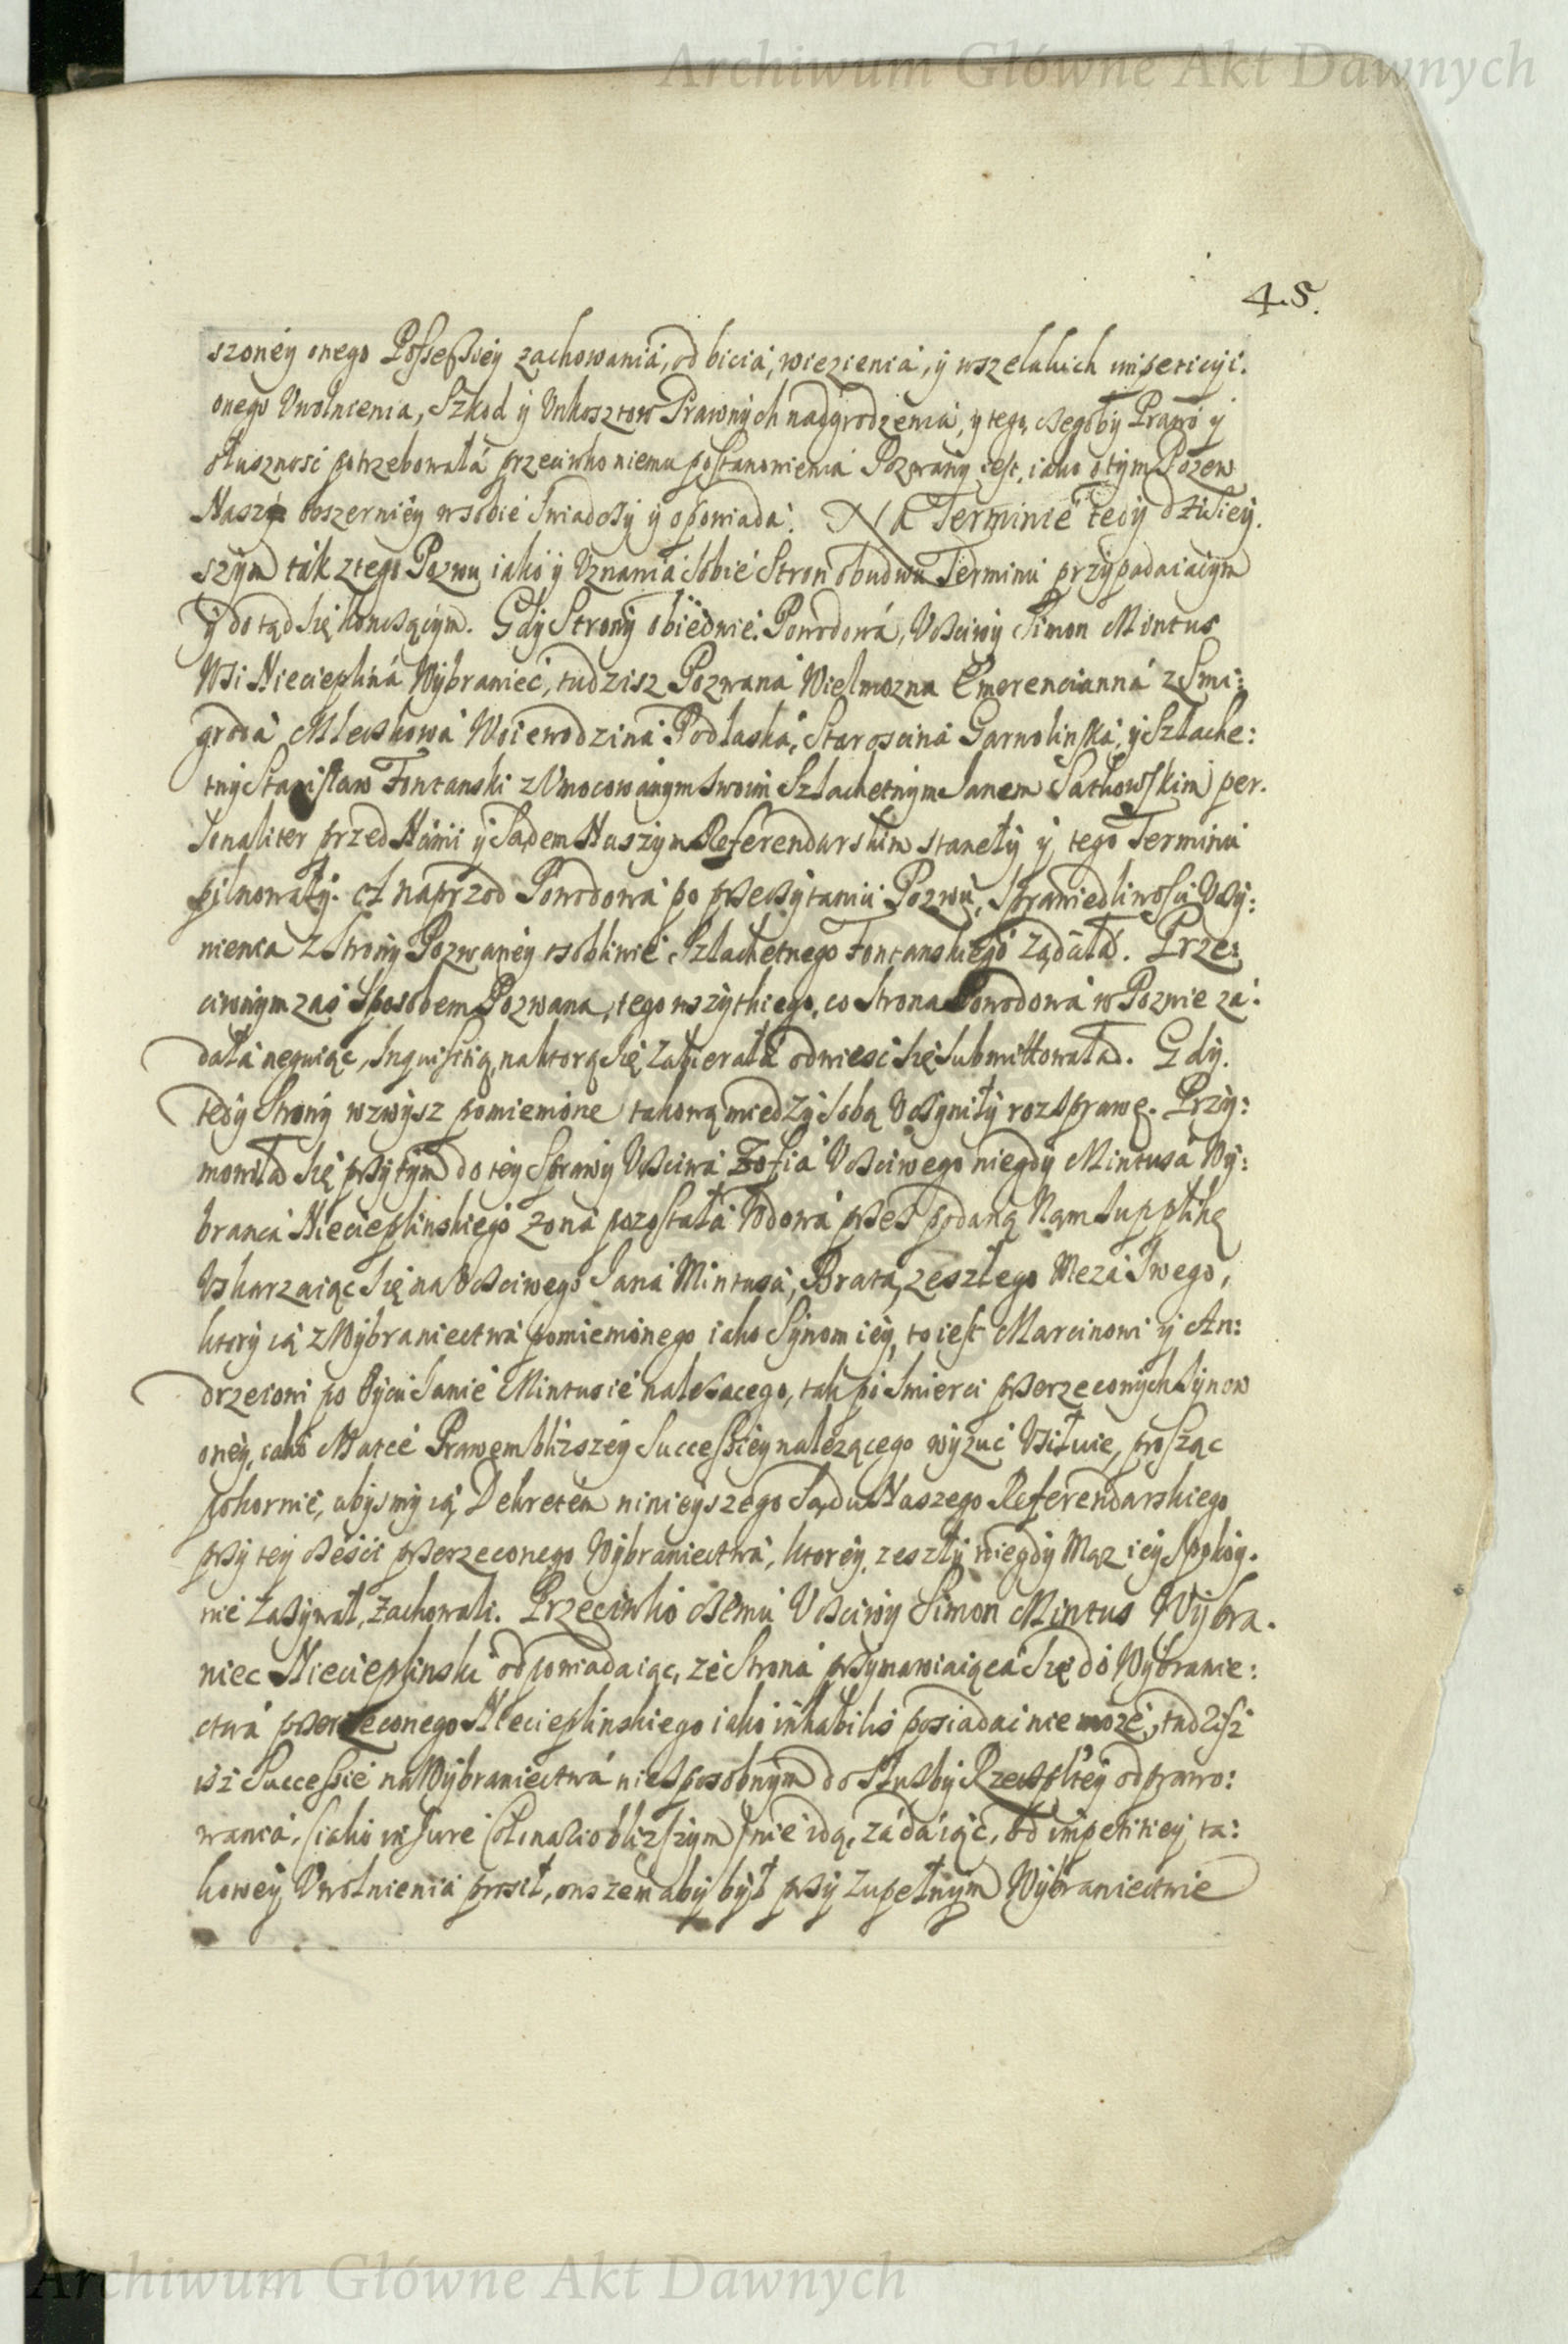 Archiwum Główne Akt Dawnych
45.
szoney onego Possessiey zachowania, od bicia, wiezienia, y wszelakich impeticyi.
onego Uwolnienia, Szkod y Unkosztow Prawnych nadgrodzenia, y tego czegoby Prawo y
słusznosc potrzebowała przeciwko niemu postanowienia Pozwany iest, iako o tym Pozew
Nasz obszerniey w sobie swiadczy y opowiada. NA Terminie tedy dzisiey.
szym tak z tego Pozwu iako y Uznania sobie Stron obudwu Terminu przypadaiacym
y do tąd się konczącym. Gdy Strony obiedwie. Powodowa, Uczciwy Simon Mintus
Wsi Niecieplina Wybraniec, tudzisz Pozwana Wielmozna Emerencianna z Smi:
groda Mleczkowa Woiewodzina Podlaska, Staroscina Garwolinska, y Szlache:
tny Stanisław Fontanski z Umocowanym swoim Szlachetnym Janem Satkowskim per.
sonaliter przed Nami y Sądem Naszym Referendarskim staneły y tego Terminu
pilnowały. A naprzod Powodowa po przeczytaniu Pozwu, Sprawiedliwosci Uczy:
nienia z Strony Pozwaney osobliwie Szlachetnego Fontanskiego ządała. Prze:
ciwnym zas sposobem Pozwana, tego wszytkiego, co Strona Powodowa w Pozwie za:
dała neguiąc, Inquisitią, na ktorą się zabierała odwiesc się submittowała. Gdy.
tedy Strony wzwysz pomienione takową miedzy sobą Uczyniły rozsprawę. Przy:
mowiła się przytym do tey Sprawy Uczciwa Zofia Uczciwego niegdy Mintusa Wy:
branca Niecieplinskiego zona pozostała Wdowa przez podaną Nam supplikę
Uskarzaiąc się na Uczciwego Jana Mintusa, Brata zeszłego Meza swego,
ktory ią z Wybraniectwa pomienionego iako Synom iey, to iest Marcinowi y An:
drzeiowi po Oycu Janie Mintusie nalezacego, tak po smierci przerzeczonych synow
oney, iako Matce Prawem blizszey Successiey nalezącego wyzuc Usiłuie, prosząc
pokornie, abysmy ią Dekretem ninieyszego Sądu Naszego Referendarskiego
przy tey czesci przerzeczonego Wybraniectwa, ktorey zeszły niegdy Mąz iey spokoy.
nie zazywał, zachowali. Przeciwko czemu Uczciwy Simon Mintus Wybra.
niec Niecieplinski odpowiadaiąc, ze Strona przymawiaiąca się do Wybranie:
ctwa przerzeczonego Niecieplinskiego iako inhabilis posiadac nie moze, tudzisz
isz Successie na Wybraniectwa niesposobnym do sluzby Rzeczpltey odprawo:
wania, (iako in Jure blizszym) nie idą, zadaiąc, od impetitiey ta:
kowey Uwolnienia prosił, onszem aby był przy zupełnym Wybraniectwie
Archiwum Główne Akt Dawnych